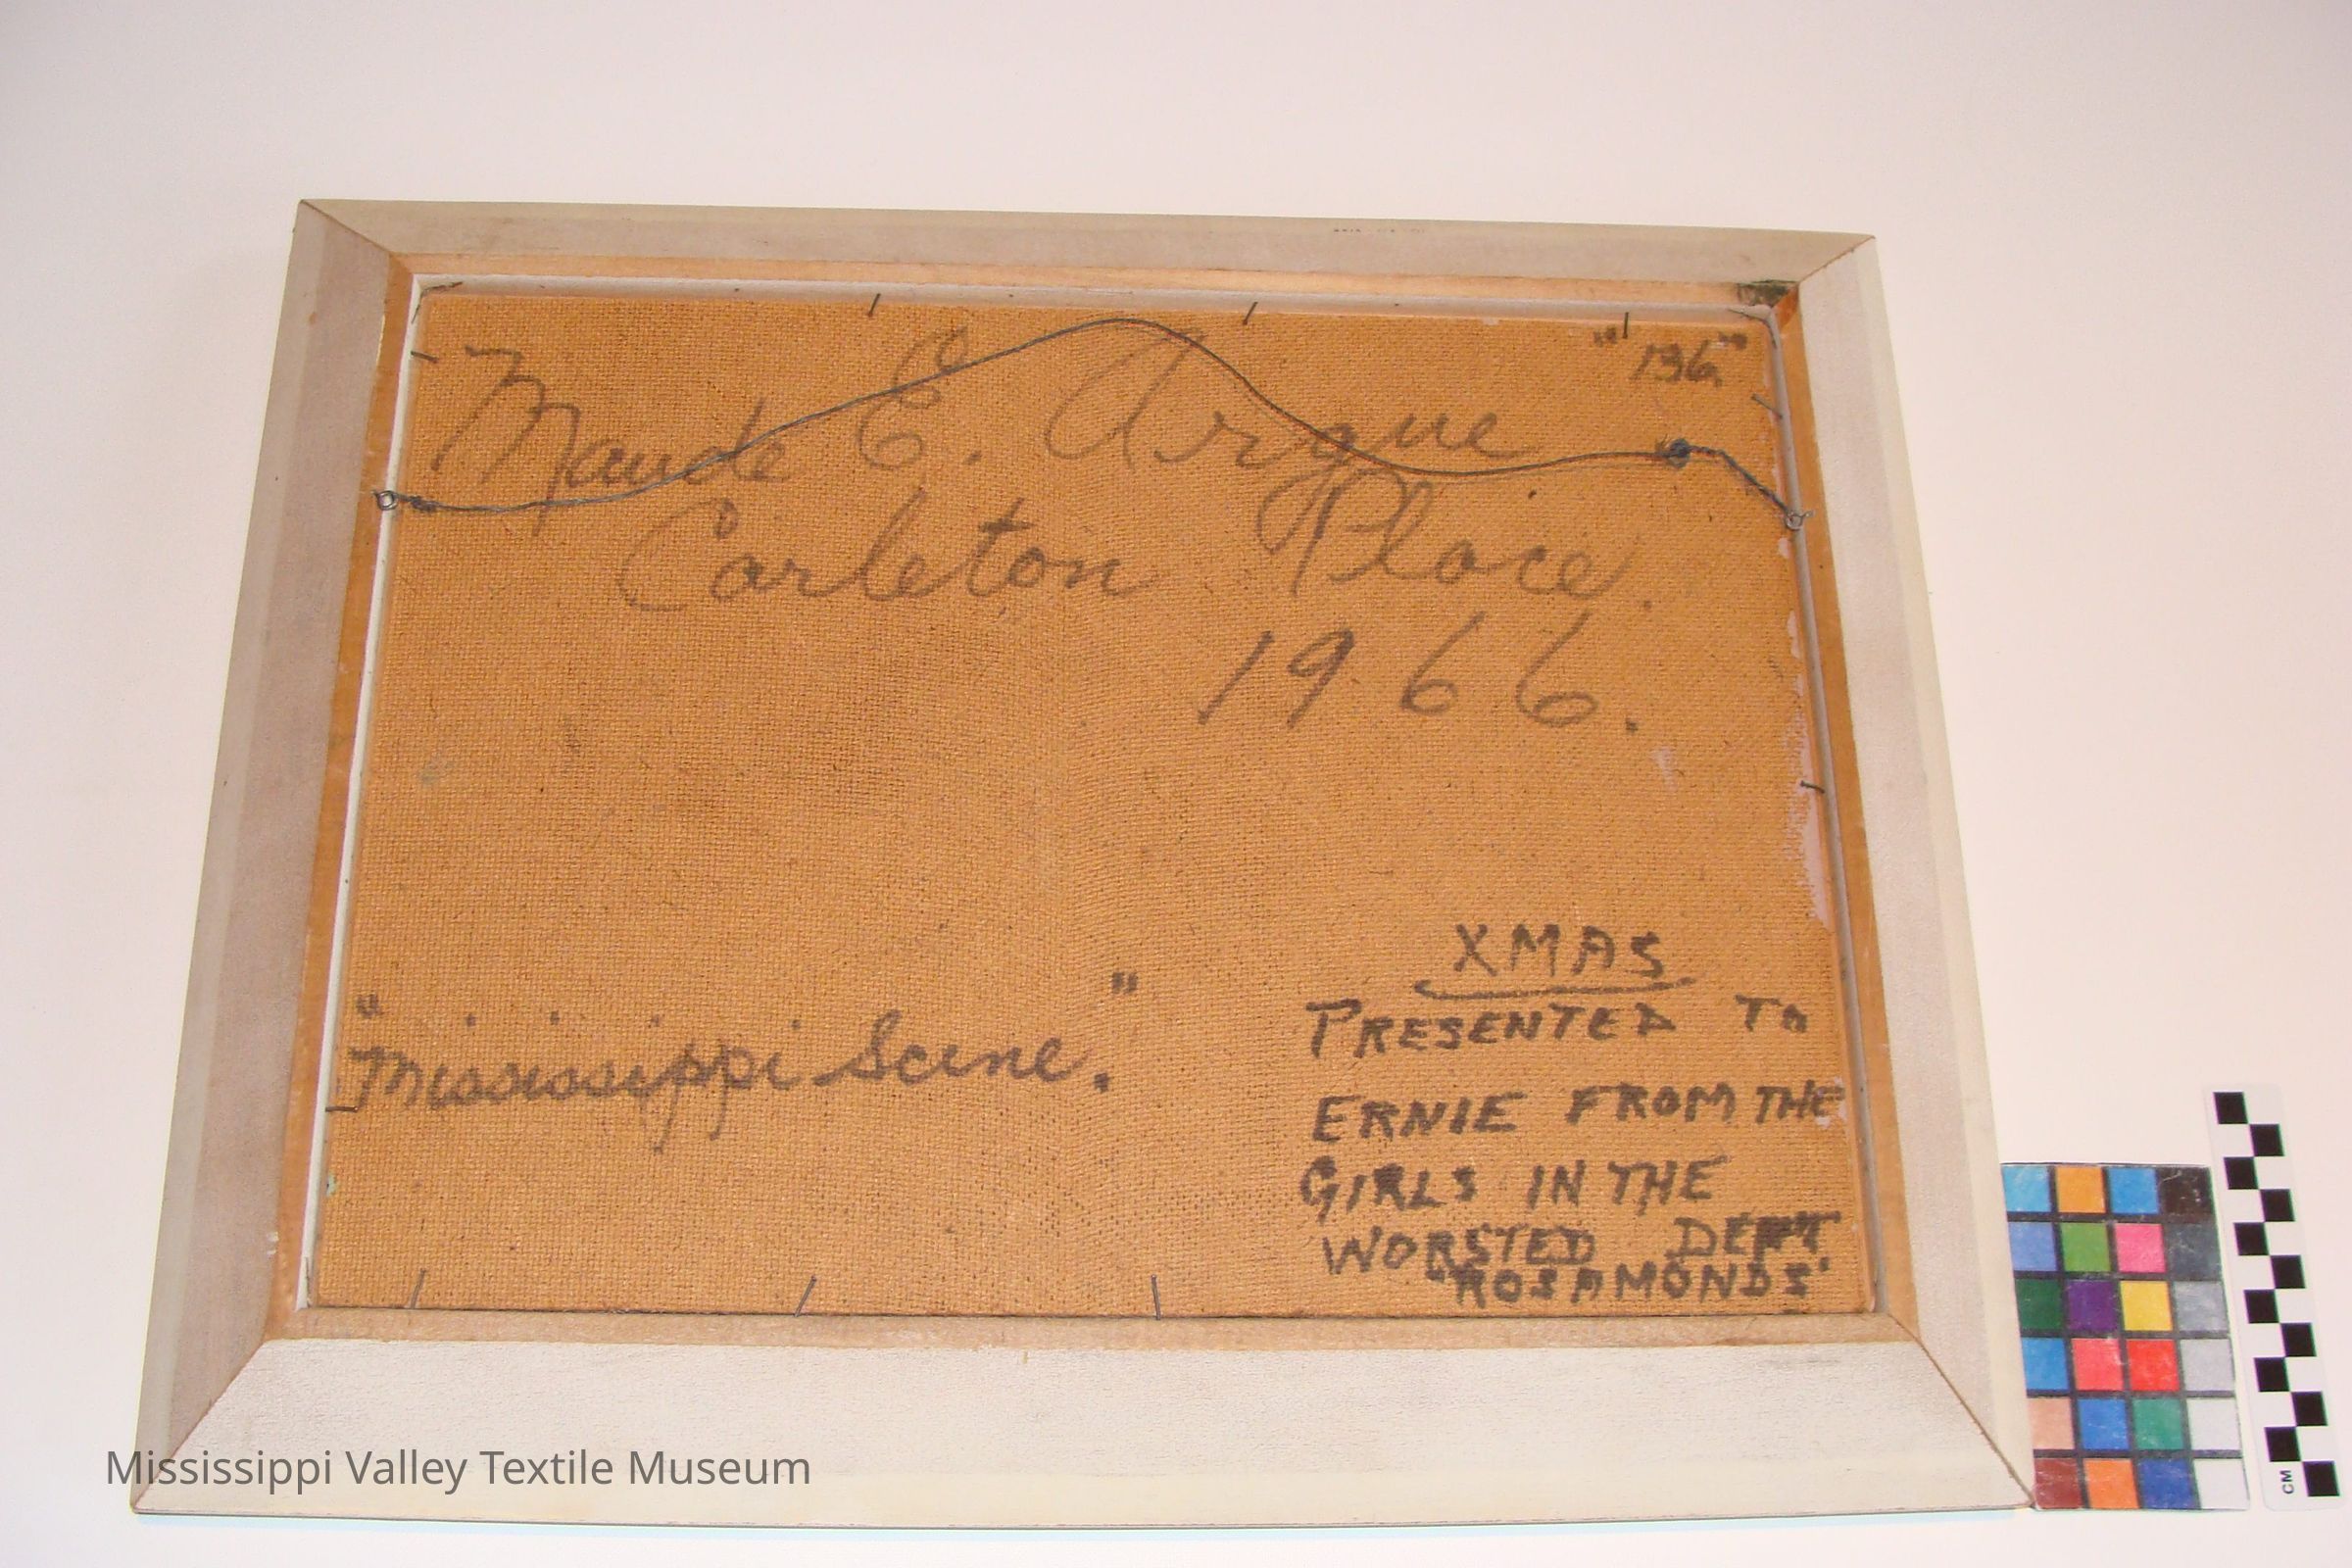 "136"
Maude E. Argue
Carleton Place.
1966.
"Mississippi Scene."
XMAS
PRESENTED TO
ERNIE FROM THE
GIRLS IN THE
WORSTED DEPT.
"ROSAMONDS"
Mississippi Valley Textile Museum
CM